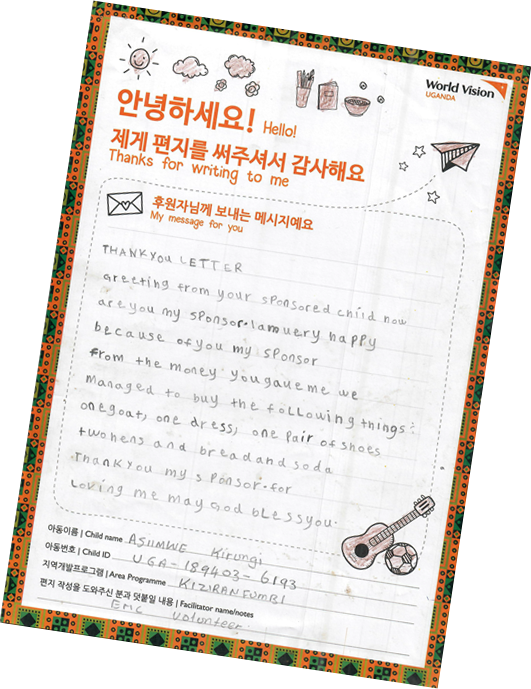 World Vision
UGANDA
안녕하세요! Hello!
제게 편지를 써주셔서 감사해요
Thanks for writing to me
후원자님께 보내는 메시지예요
My message for you
THANKYOU LETTER
Greeting from your sponsored child now
are you my sponsor. Iamuery happy
because of you my sponsor
from the money yougaueme we
managed to buy the following things:
onegoat, one dress, one pair of shoes
twohens and breadand soda
Thankyou my sponsor.for
Loving me may God blessyou.
아동이름 | Child name ASIIMWE Kirungi
아동번호 | Child ID UGA-189403-6193
지역개발프로그램 | Area Programme KIZIRANFUMBI
편지 작성을 도와주신 분과 덧붙일 내용 | Facilitator name/notes
Eric volunteer.